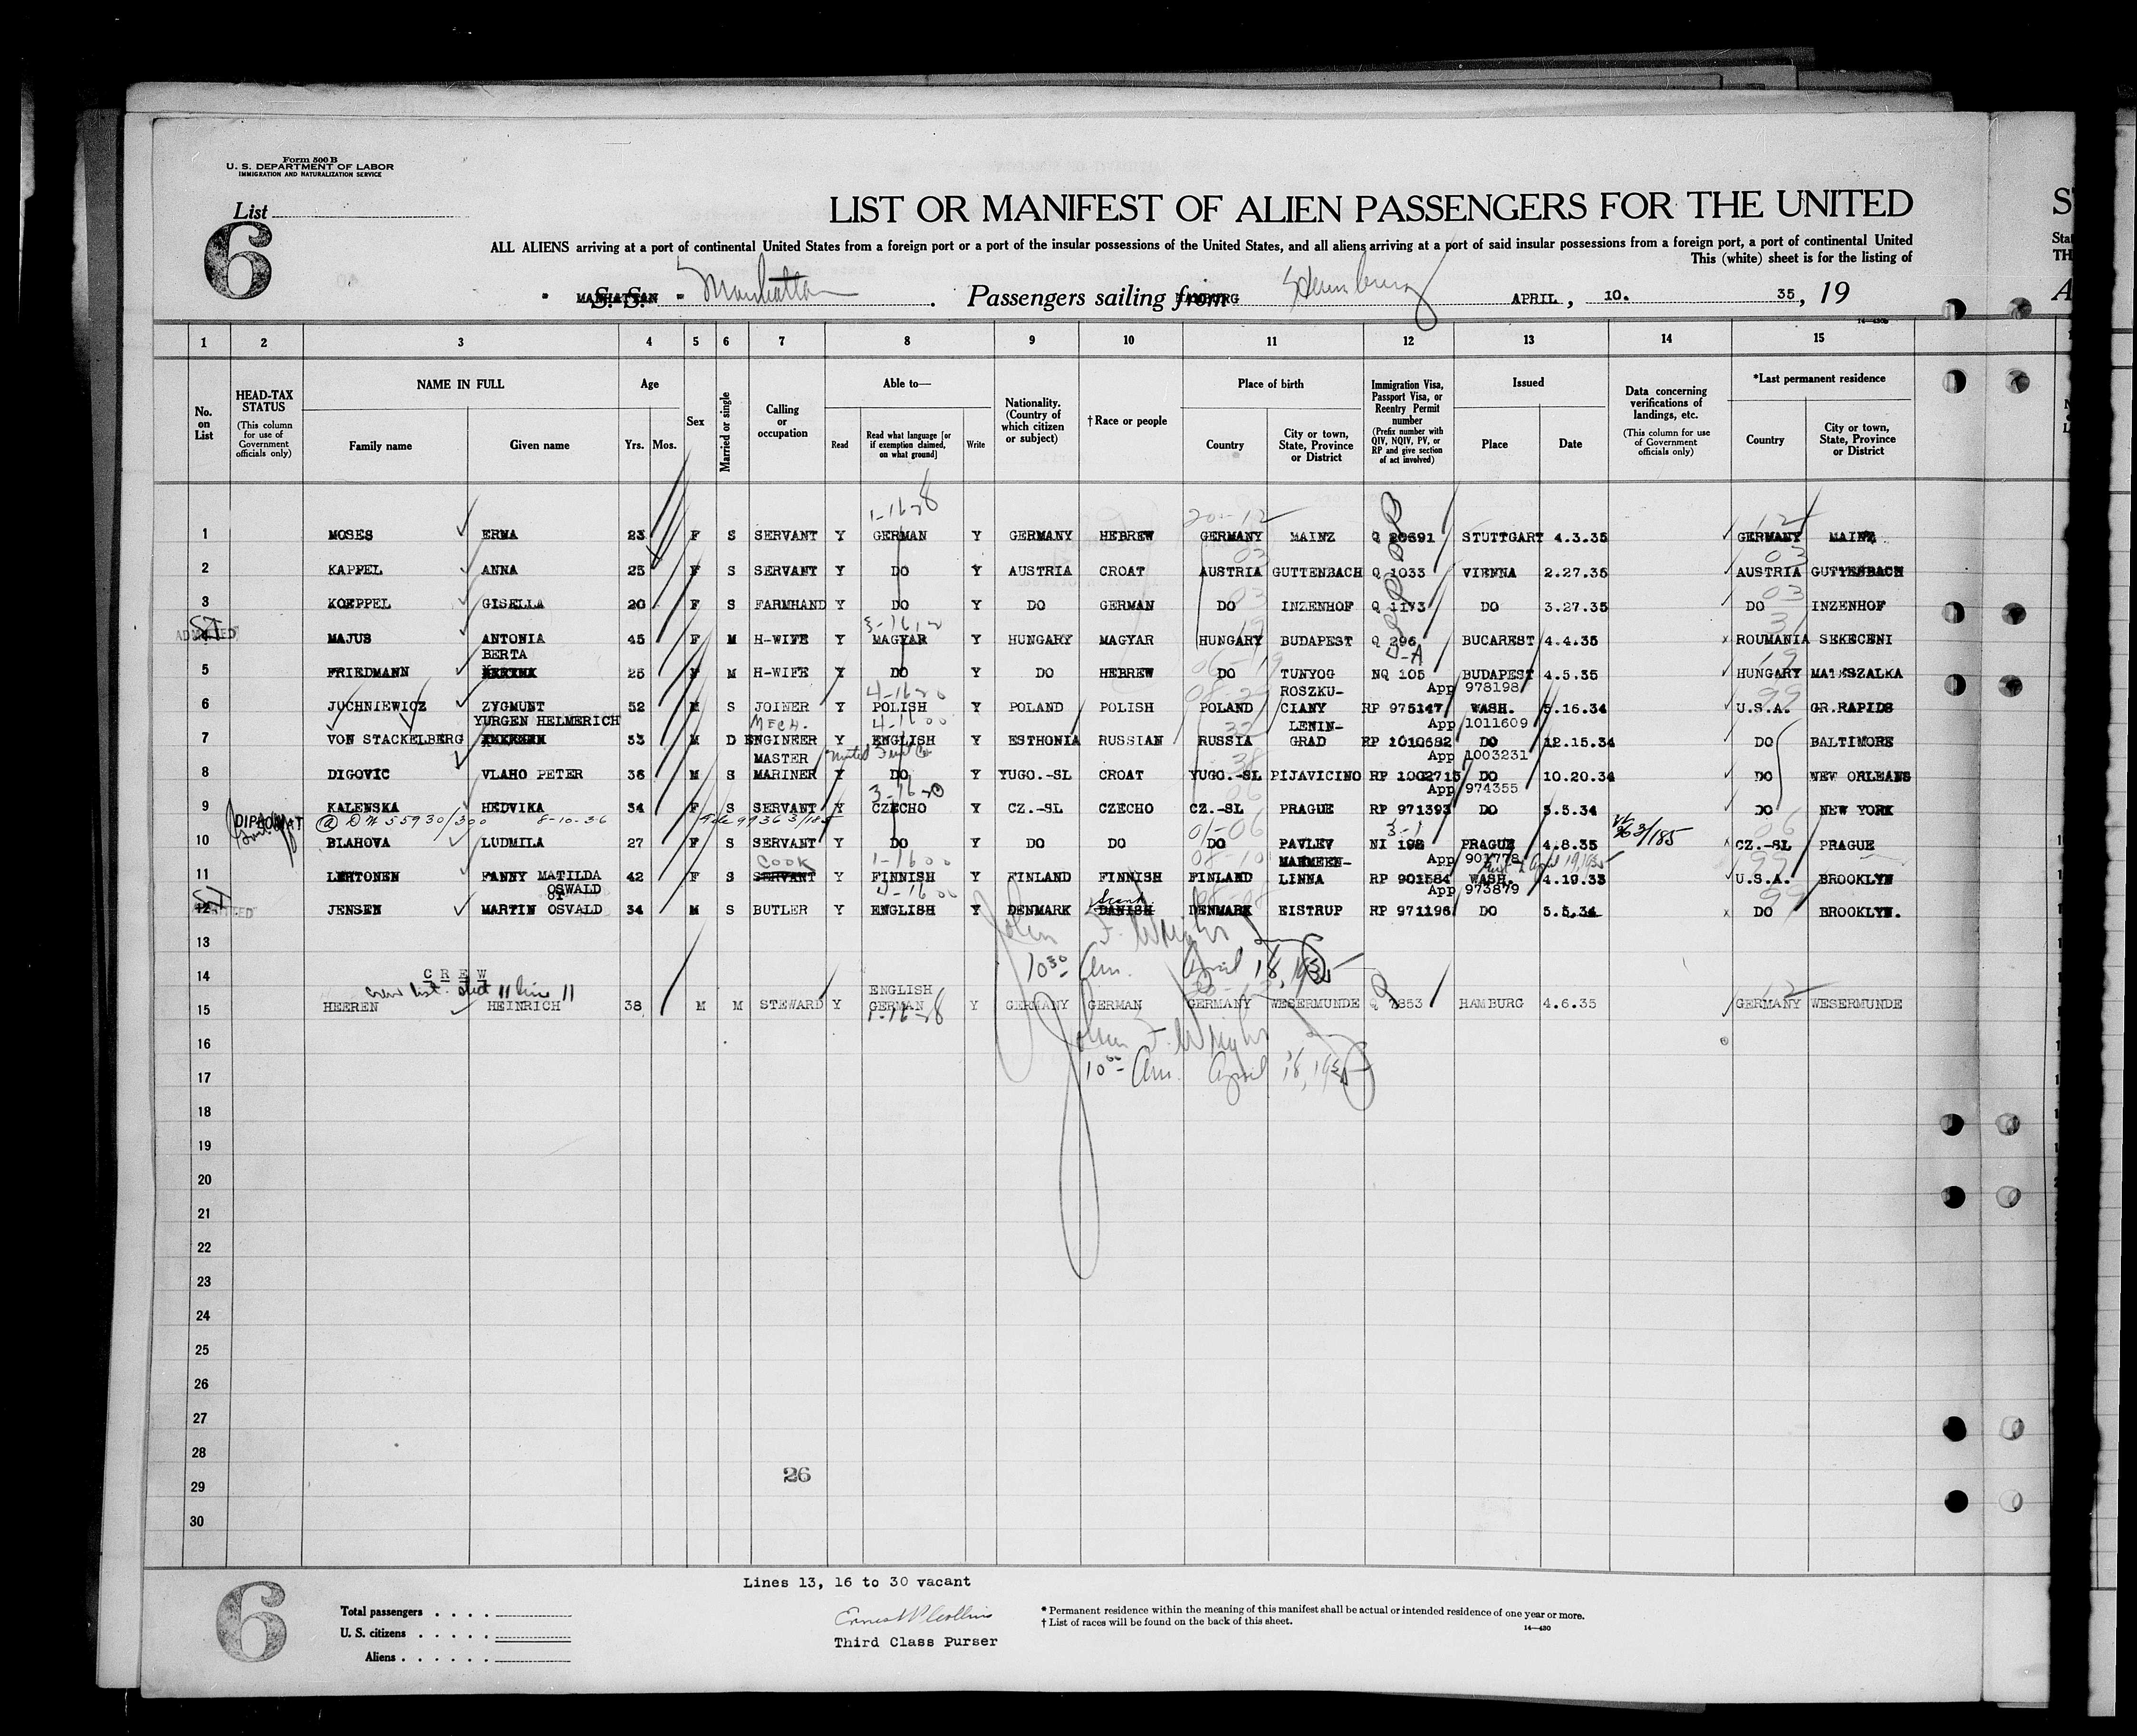 Form 500 B
U. S. DEPARTMENT OF LABOR
IMMIGRATION AND NATURALIZATION SERVICE
List
6
LIST OR MANIFEST OF ALIEN PASSENGERS FOR THE UNITED
ALL ALIENS arriving at a port of continental United States from a foreign port or a port of the insular possessions of the United States, and all aliens arriving at a port of said insular possessions from a foreign port, a port of continental United
This (white) sheet is for the listing of
MANHATTAN S. S. Manhattan. Passengers sailing from HAMBURG Hamburg APRIL, 10. 35, 19
14—430b
1 2 3 4 5 6 7 8 9 10 11 12 13 14 15
No. on List
HEAD-TAX STATUS (This column for use of Government officials only)
NAME IN FULL Family name Given name
Age Yrs. Mos.
Sex
Married or single
Calling or occupation
Able to— Read Read what language [or if exemption claimed, on what ground] Write
Nationality. (Country of which citizen or subject)
† Race or people
Place of birth Country City or town, State, Province or District
Immigration Visa, Passport Visa, or Reentry Permit number (Prefix number with QIV, NQIV, PV, or RP and give section of act involved)
Issued Place Date
Data concerning verifications of landings, etc. (This column for use of Government officials only)
*Last permanent residence Country City or town, State, Province or District
1-16-28 20-12 12
1 MOSES ERMA 23 F S SERVANT Y GERMAN Y GERMANY HEBREW GERMANY MAINZ Q 20691 STUTTGART 4.3.35 GERMANY MAINZ
03 03
2 KAPPEL ANNA 25 F S SERVANT Y DO Y AUSTRIA CROAT AUSTRIA GUTTENBACH Q 1033 VIENNA 2.27.35 AUSTRIA GUTTENBACH
03 03
3 KOEPPEL GISELLA 20 F S FARMHAND Y DO Y DO GERMAN DO INZENHOF Q 1173 DO 3.27.35 DO INZENHOF
ADMITTED 19 31
4 MAJUS ANTONIA 45 F M H-WIFE Y MAGYAR Y HUNGARY MAGYAR HUNGARY BUDAPEST Q 296 BUCAREST 4.4.35 ROUMANIA SEKECENI
BERTA 06-19 19
5 FRIEDMANN 25 F M H-WIFE Y DO Y DO HEBREW DO TUNYOG NQ 105 BUDAPEST 4.5.35 HUNGARY MATESZALKA
ROSZKU- App 978198 99
6 JUCHNIEWICZ ZYGMUNT 52 M S JOINER Y POLISH Y POLAND POLISH POLAND CIANY RP 975147 WASH. 5.16.34 U.S.A. GR.RAPIDS
YURGEN HELMERICH MECH. 4-16 00 32 LENIN- App 1011609
7 VON STACKELBERG 33 M D ENGINEER Y ENGLISH Y ESTHONIA RUSSIAN RUSSIA GRAD RP 1010682 DO 12.15.34 DO BALTIMORE
MASTER United Fruit Co 38 App 1003231
8 DIGOVIC VLAHO PETER 36 M S MARINER Y DO Y YUGO.-SL CROAT YUGO.-SL PIJAVICINO RP 1002715 DO 10.20.34 DO NEW ORLEANS
06 App 974355
9 KALENSKA HEDVIKA 34 F S SERVANT Y CZECHO Y CZ.-SL CZECHO CZ.-SL PRAGUE RP 971393 DO 5.5.34 DO NEW YORK
DIPLOMAT 55930/300 8-10-36 99363/185 01-06 3-1 963/185 06
10 BLAHOVA LUDMILA 27 F S SERVANT Y DO Y DO DO DO PAVLEV NI 198 PRAGUE 4.8.35 CZ.-SL PRAGUE
COOK 1-16 00 08-10 MARMEEN- App 901778 April 19, 1935 99
11 LEHTONEN FANNY MATILDA 42 F S SERVANT Y FINNISH Y FINLAND FINNISH FINLAND LINNA RP 901584 WASH. 4.19.33 U.S.A. BROOKLYN
OSWALD or 4-16 00 Scand App 973879 99
12 JENSEN MARTIN OSVALD 34 M S BUTLER Y ENGLISH Y DENMARK DANISH DENMARK EISTRUP RP 971196 DO 5.5.34 DO BROOKLYN.
John F. Wright
13
10 30 Am. April 18, 1935
14 C R E W
crew list sheet 11 line 11 ENGLISH 12
15 HEEREN HEINRICH 38 M M STEWARD Y GERMAN Y GERMANY GERMAN GERMANY WESERMUNDE Q 7853 HAMBURG 4.6.35 GERMANY WESERMUNDE
1-16-28
16 John F. Wright
17 10 00 Am. April 18, 1935
18
19
20
21
22
23
24
25
26
27
28
26
29
30
6
Lines 13, 16 to 30 vacant
Total passengers . . . .
U. S. citizens . . . . .
Aliens . . . . . .
Ernest P. Collins
Third Class Purser
* Permanent residence within the meaning of this manifest shall be actual or intended residence of one year or more.
† List of races will be found on the back of this sheet.
14—430